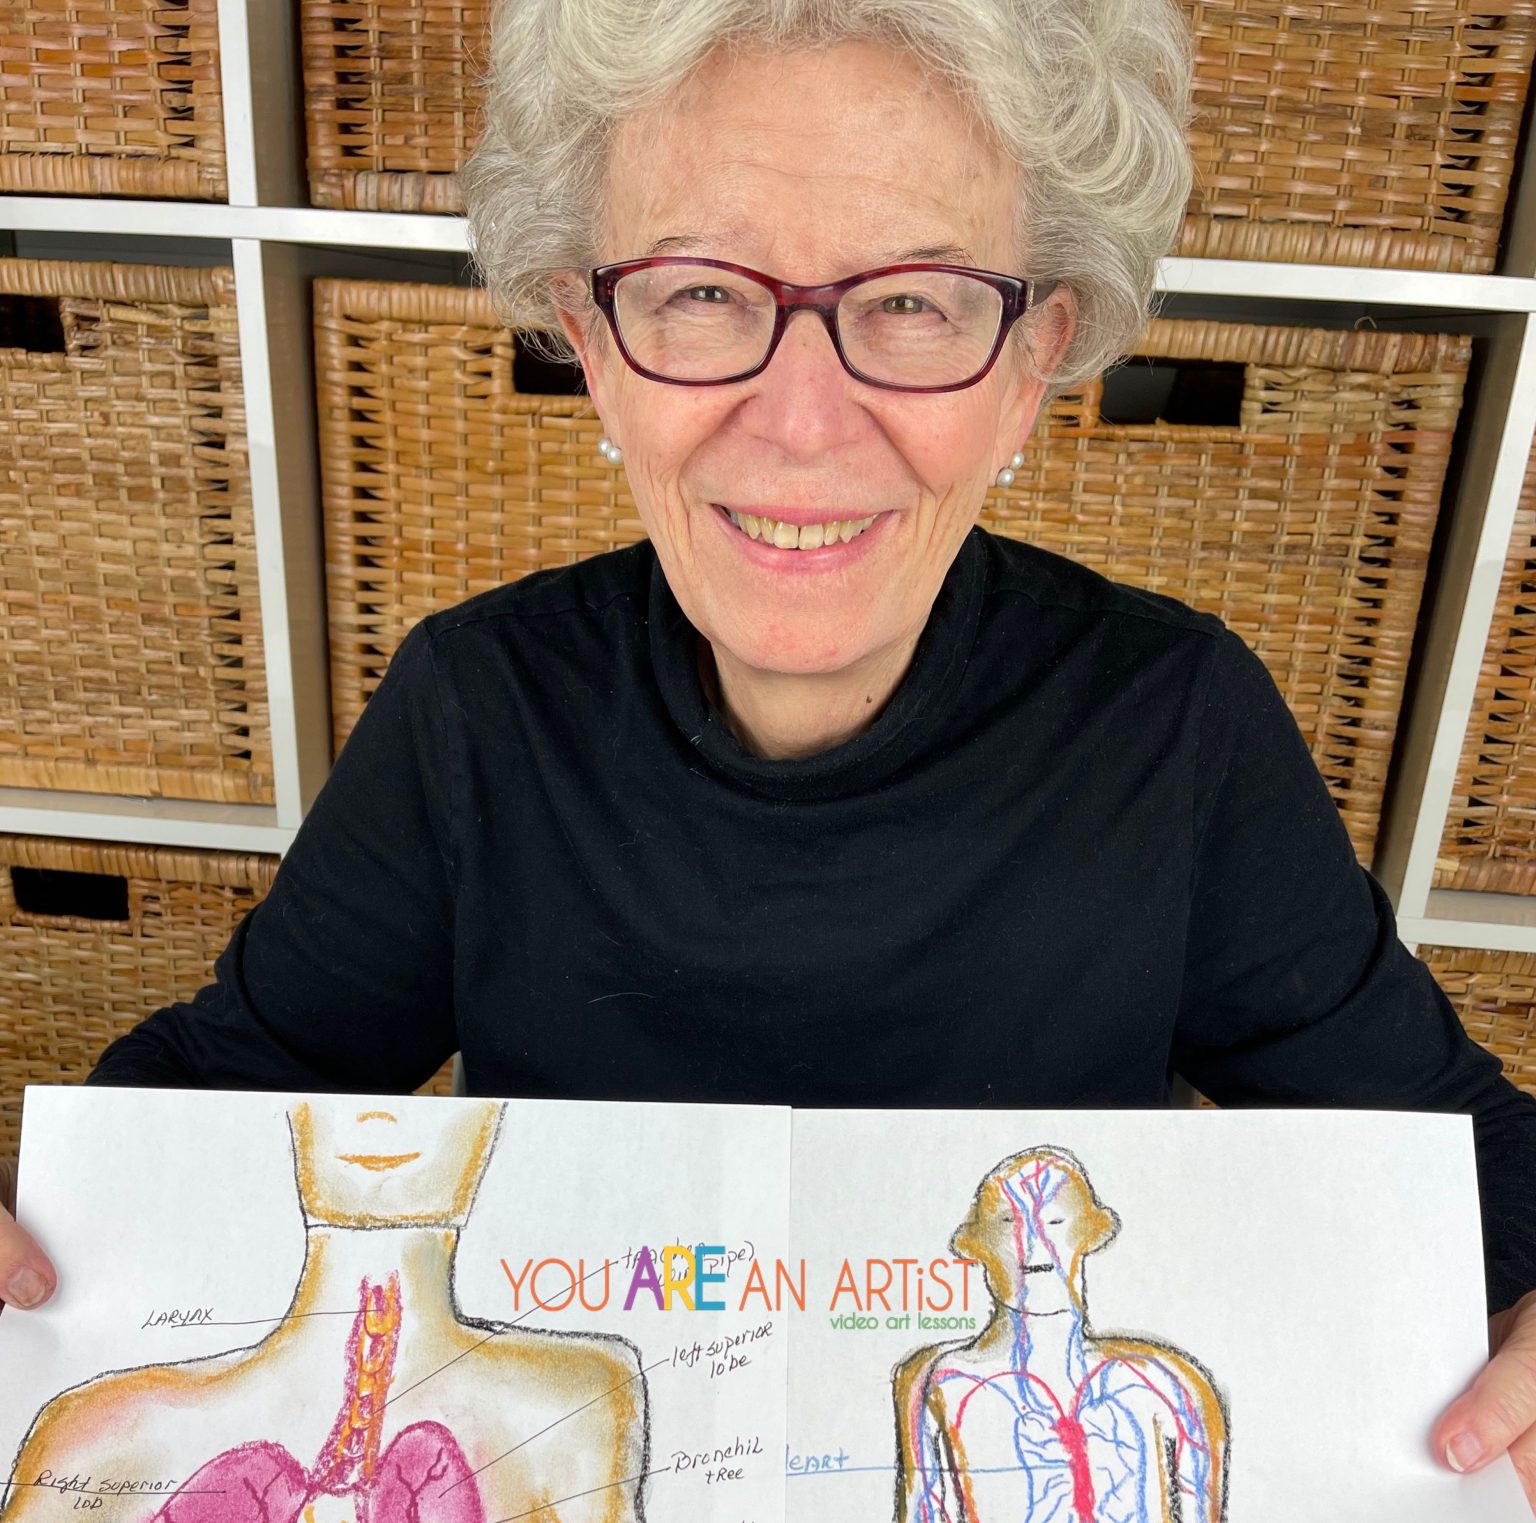 trachea
(windpipe)
YOU ARE AN ARTiST
video art lessons
LARYNX
left superior
lobe
Bronchil
tree
Right superior
LOD
HeART